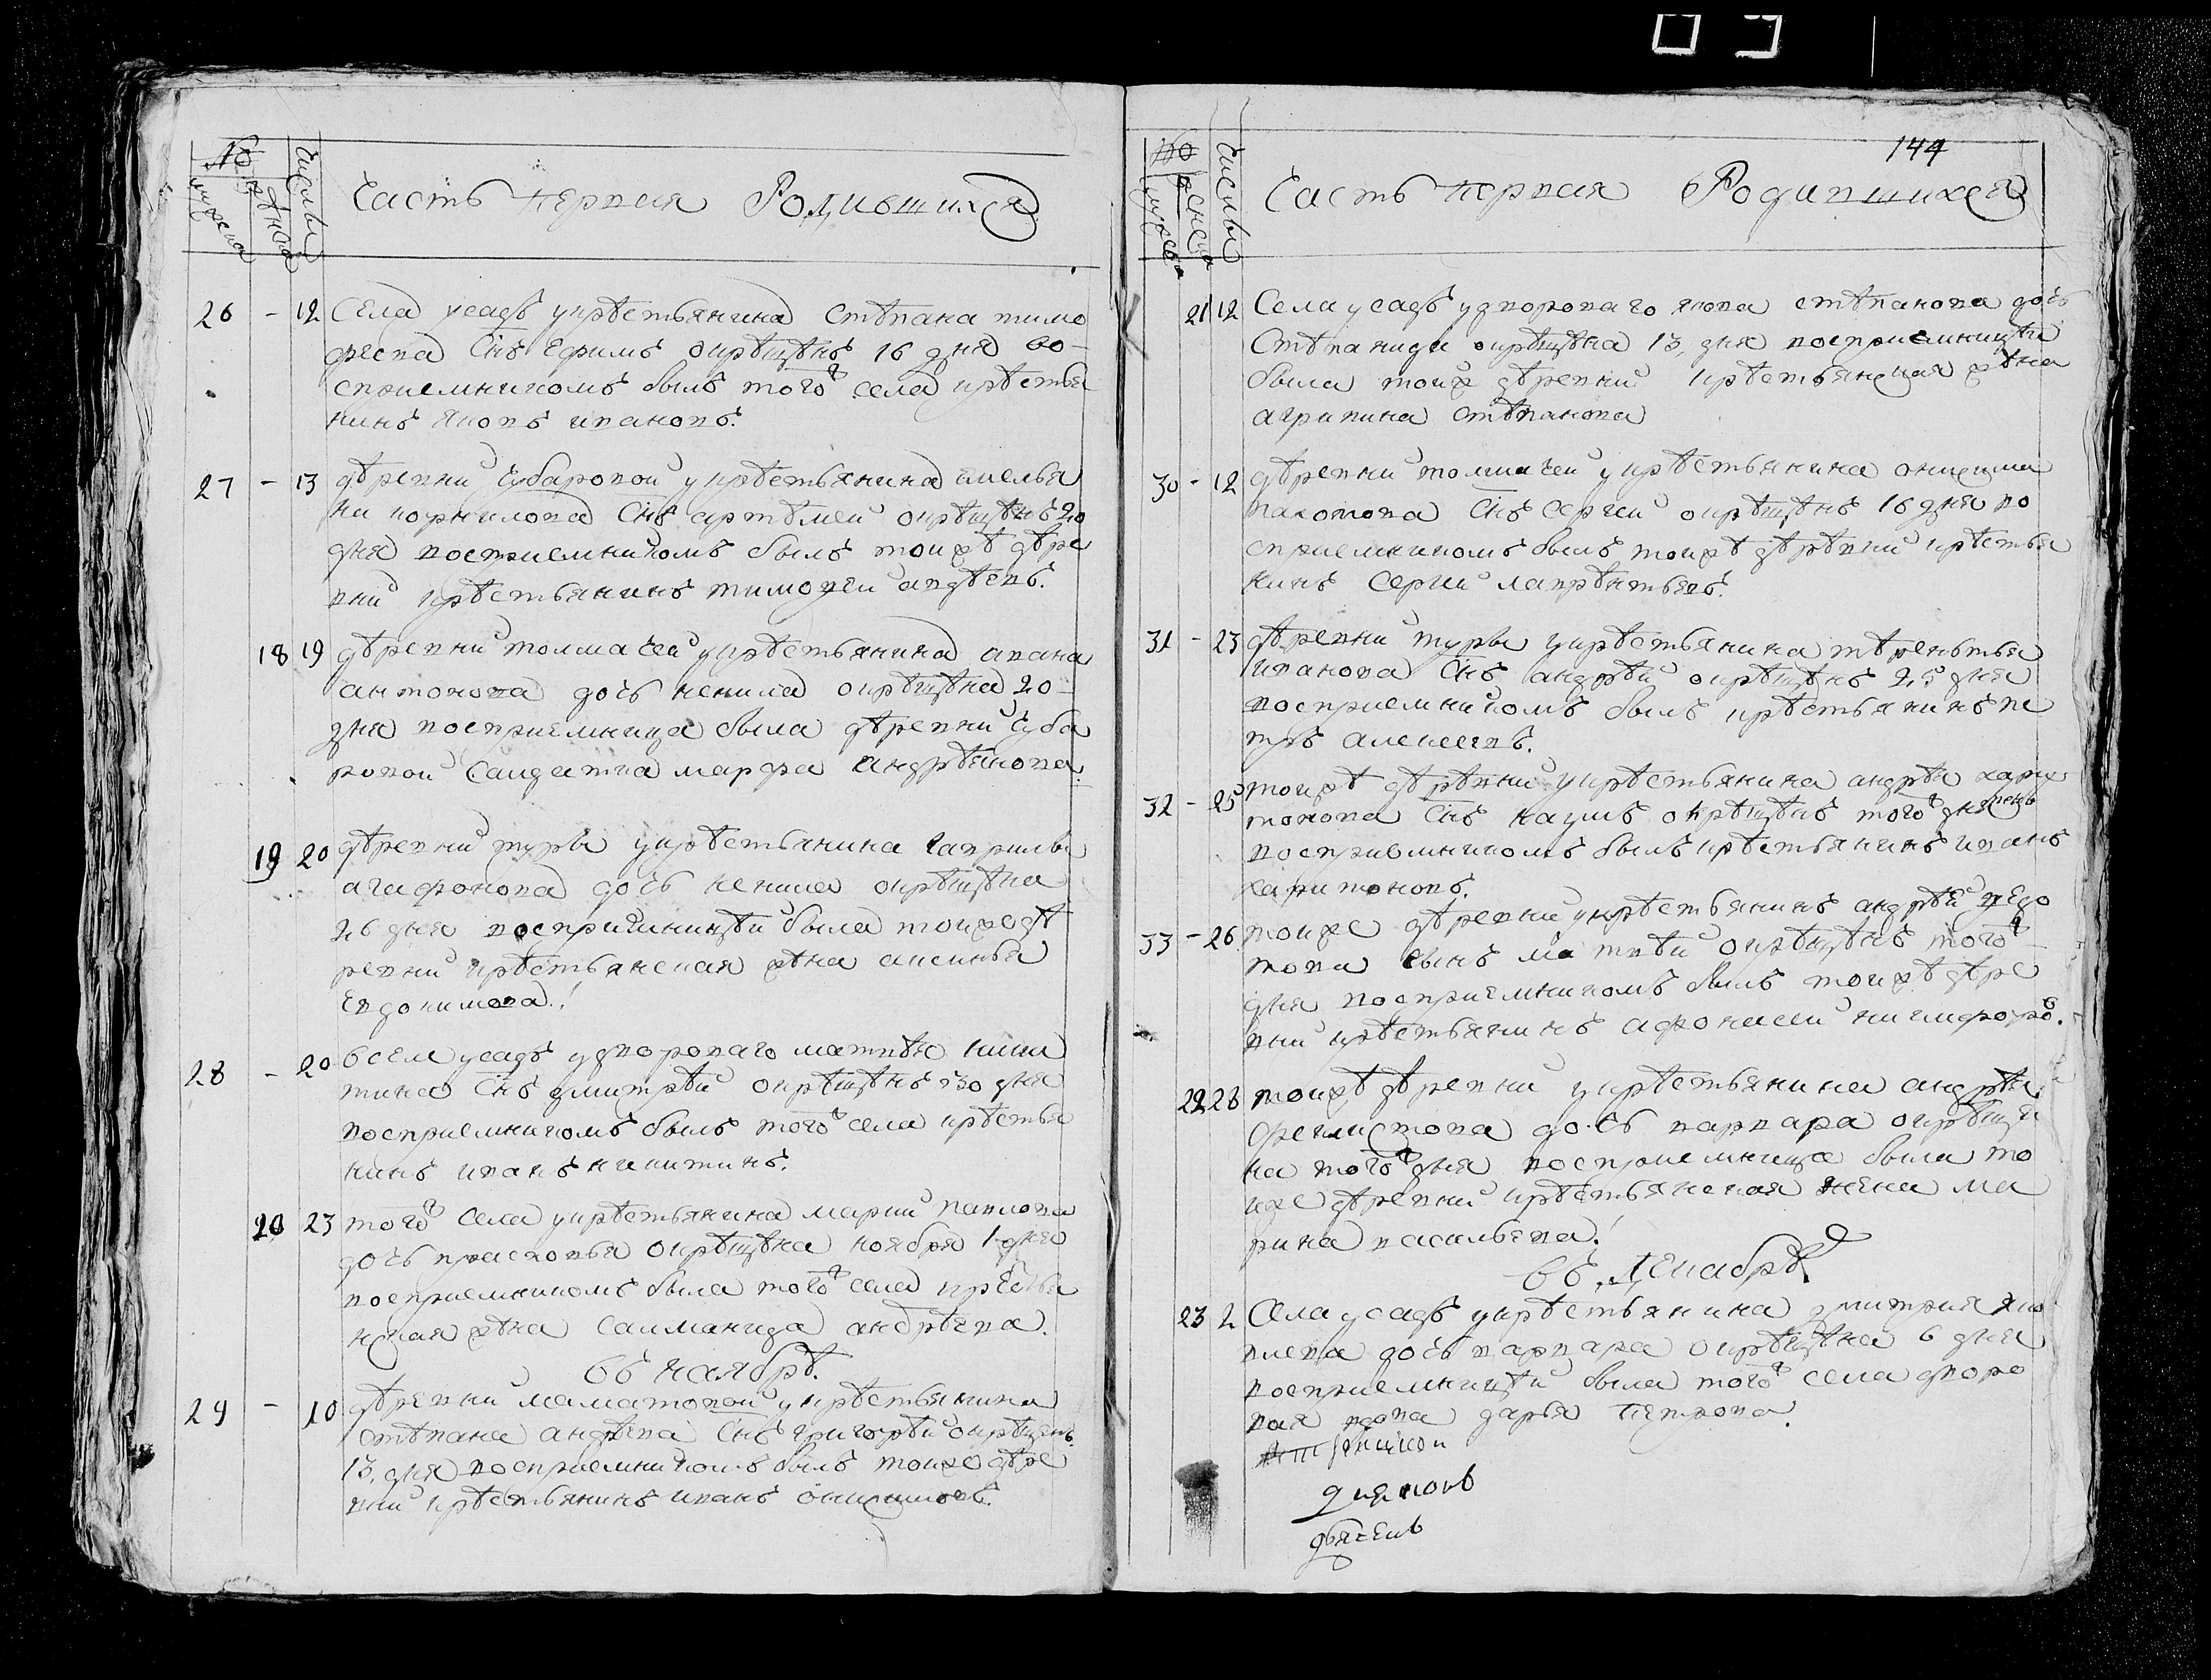 № Числы
мужска женска
Часть первая Родившихся
26 - 12 Села усадъ укрѣстьянина Стѣпана тимо
фѣева Снъ Ефимъ окрѣщѣнъ 16 дня во-
сприемникомъ былъ того ж села крѣстья
нинъ яковъ ивановъ.
27 - 13 дѣревни Губаровой укрѣстьянина амелья
на корнилова Снъ артѣмеи окрѣщѣнъ 20
дня восприемникомъ былъ тоижѣ дѣре
вни крѣстьянинъ тимофеи авдѣевъ.
18 19 дѣревни толмачеи укрѣстьянина ивана
антонова дочь ненила окрѣщѣна 20-
дня восприемница была дѣревни Губа
ровои Салдатка марфа андрѣянова.
19 20 дѣревни туры укрѣстьянина гаврилы
агафонова дочь ненила окрѣщѣна
26 дня восприемницѣи была тоижѣ дѣ
ревни крѣстьянская жѣна аксинья
Евдокимова.
28 - 20 всели усадъ удворового матвѣя ники
тина Снъ дмитрѣи окрѣщѣнъ 30 дня
восприемникомъ былъ того ж села крѣстья
нинъ иванъ никитинъ.
20 23 того ж села укрѣстьянина марии павлова
дочь прасковья окрѣщѣна ноября 1 дня
восприемникомъ была того ж села крѣстья
нская жѣна Саломанида андрѣева.
въ ноябрѣ.
29 - 10 дѣревни маматовои укрѣстьянина
стѣпана андрѣева Снъ григорѣи окрѣщенъ
13, дня восприемникомъ былъ тоиже дѣре
вни крѣстьянинъ иванъ онисимовъ.
144
№ Числы
мужска женска
Часть первая Родившихся
21 12 Села усадъ удворового якова стѣпанова дочь
Стѣпанида окрѣщѣна 13, дня восприемницѣи
была тоиж дѣревни крѣстьянская жѣна
агрипина стѣпанова
30 - 12 дѣревни толмачеи укрѣстьянина онисима
пахомова Снъ Сергеи окрѣщѣнъ 16 дня во
сприемникомъ былъ тоижѣ дѣрѣвни крѣстья
нинъ Сергеи лаврѣнтьевъ.
31 - 23 дѣревни туры укрѣстьянина тѣрѣнтья
иванова Снъ андрѣи окрѣщѣнъ 25 дня
восприемникомъ былъ крѣстьянинъ пе
тръ алексеевъ.
32 - 25 тоижѣ дѣрѣвни укрѣстьянина андрѣя хари
тонова Снъ наумъ окрѣщѣнъ того ж дня
восприемникомъ былъ крѣстьянинъ иванъ
харитоновъ.
33 - 26 тоиже дѣревни укрѣстьянинъ андрѣи федо
това сынъ матвѣи окрѣщѣнъ того ж
дня восприемникомъ былъ тоижѣ дѣре
вни крѣстьянинъ афонасеи никифоровъ.
22 28 тоижѣ дѣревни укрѣстьянина андрѣя
феклистова дочь варвара окрѣщѣ
на того ж дня восприемница была то
иже дѣревни крѣстьянская жена ма
рина васильева.
въ Декабрѣ
23 2 Села усадъ укрѣстьянина дмитрия яко
влева дочь варвара окрѣщѣна 6 дня
восприемницѣи была того ж села дворо
вая вдова дарья петрова.
дияконъ
дьячекъ